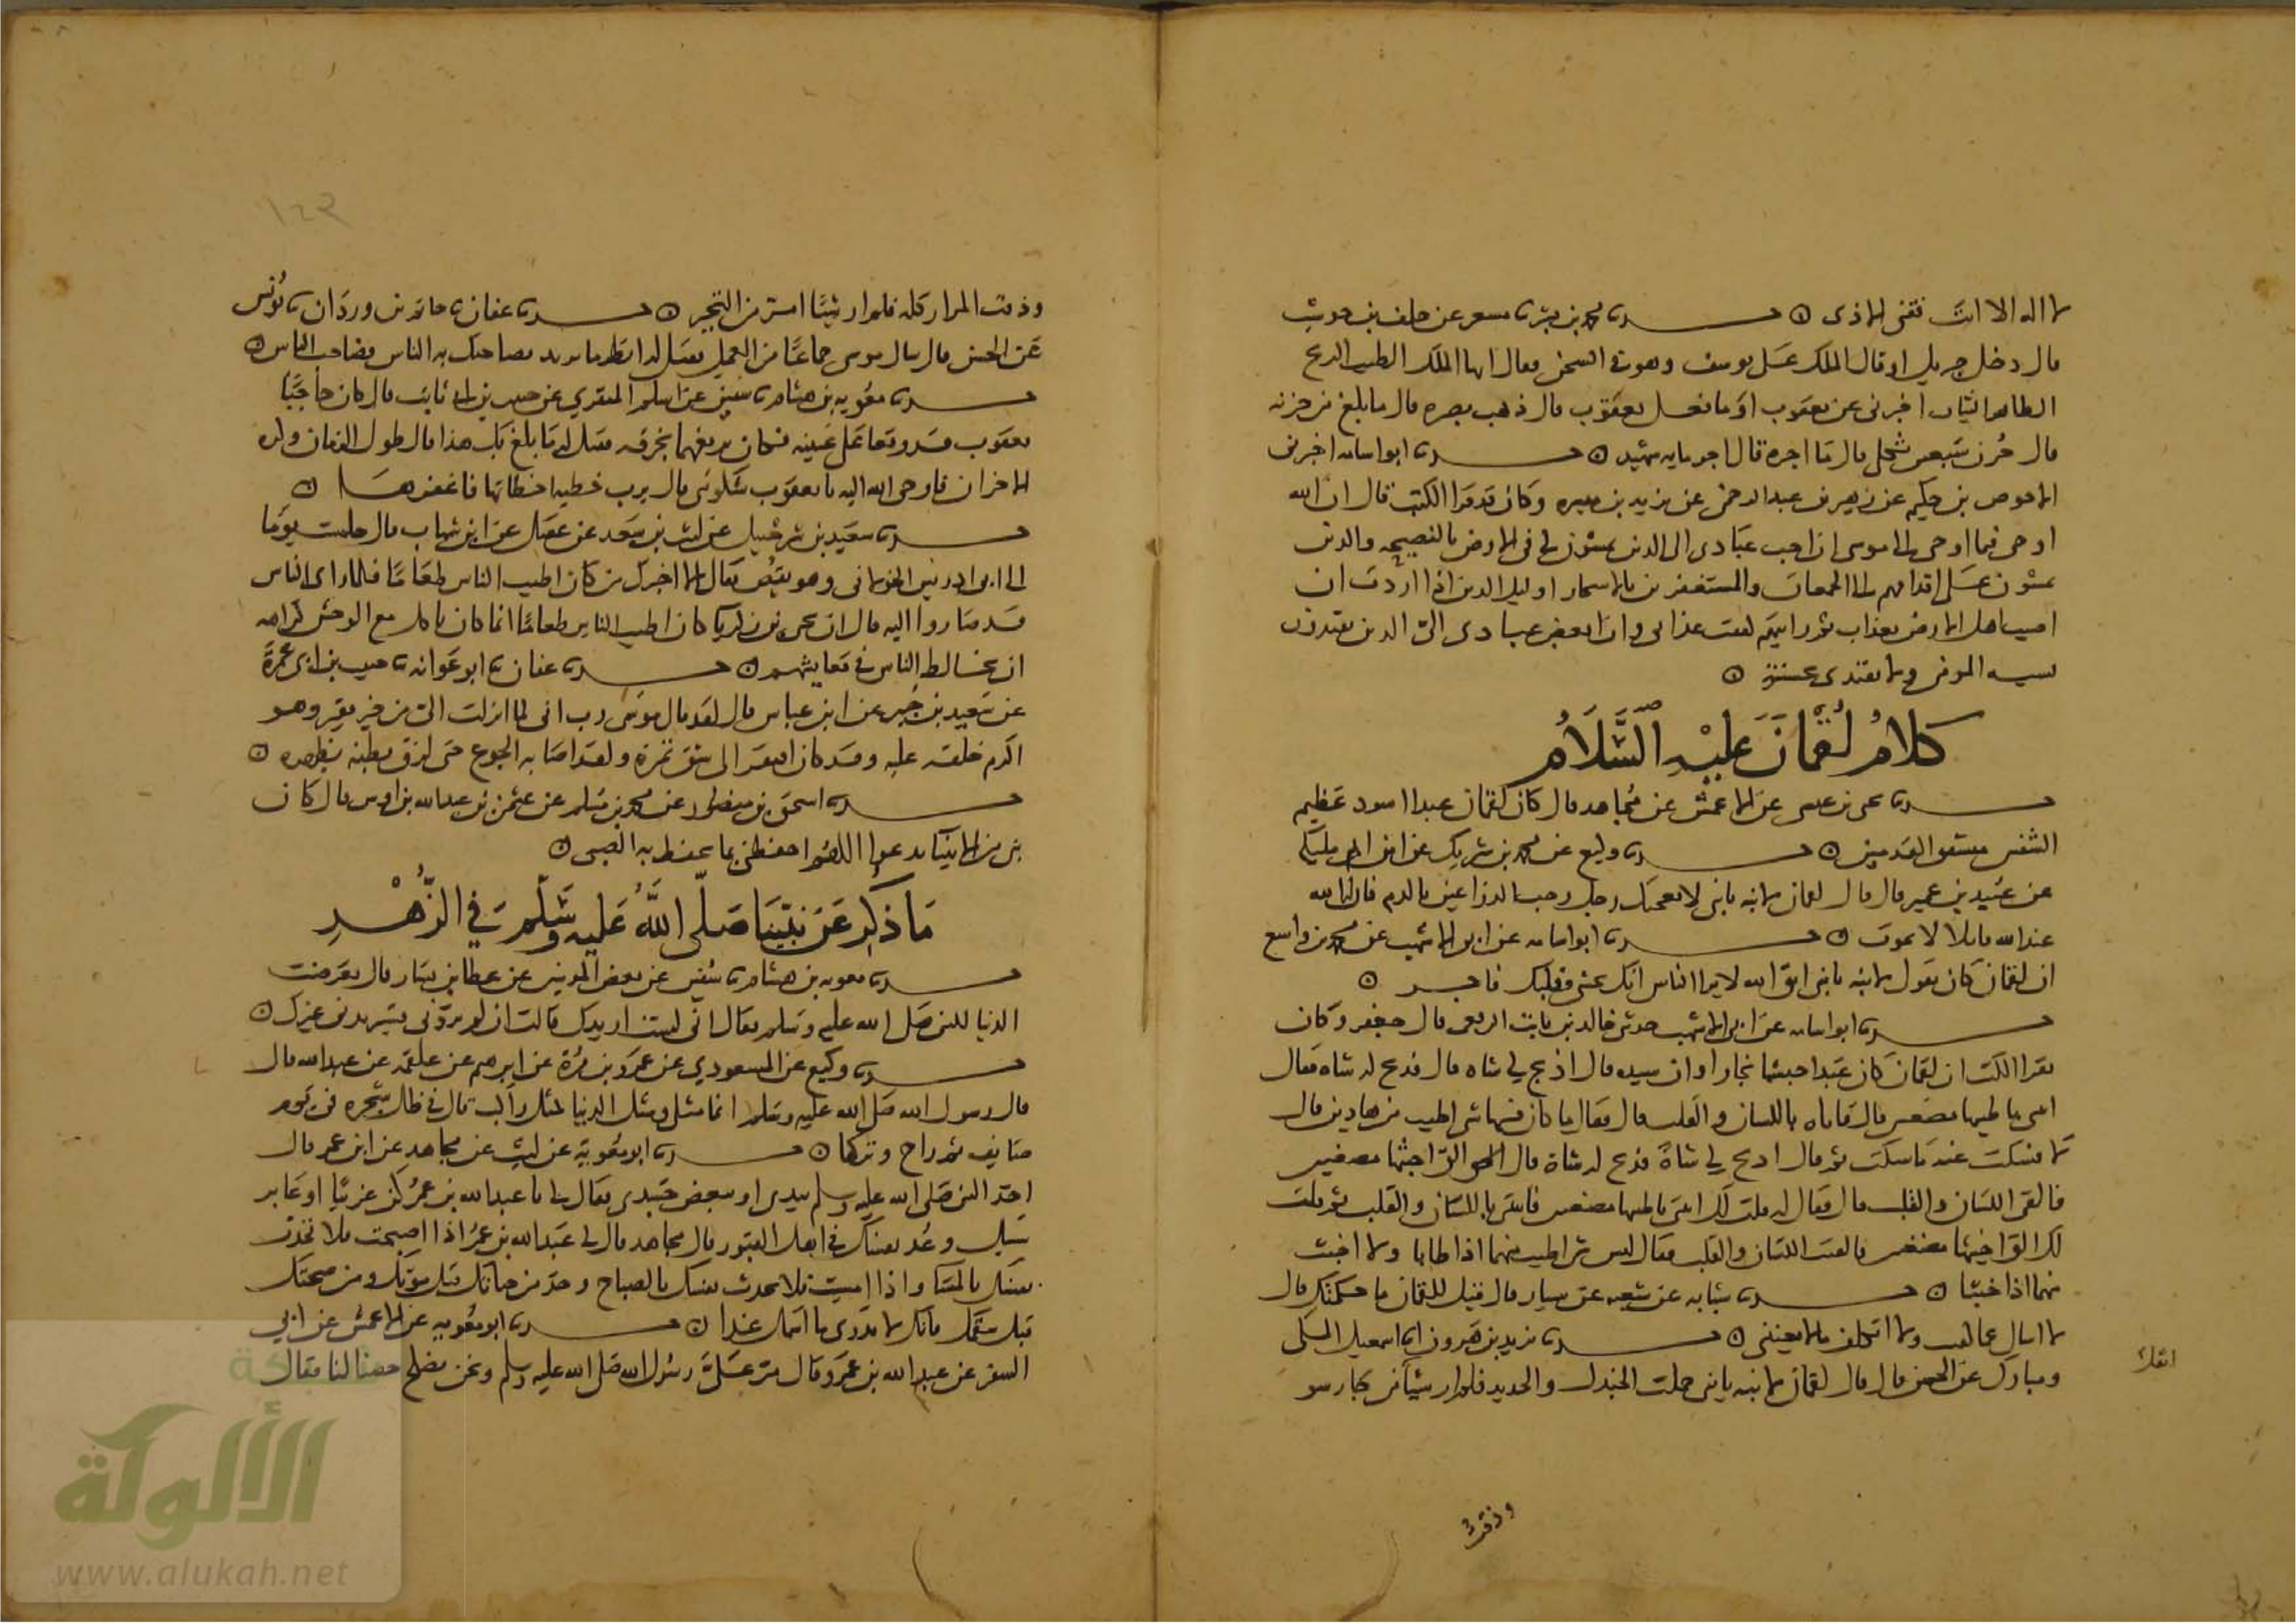 لا اله الا انت نقني الاذى ۞ حدثنا محمد بن بشر ثنا مسعر عن خلف بن حوشب
قال دخل جبريل او قال الملك على يوسف وهو في السجن فقال ايها الملك الطيب الريح
الطاهر الثياب اخبرني عن يعقوب او ما فعل يعقوب قال ذهب بصره قال ما بلغ من حزنه
قال حزن سبعين ثكلى قال ما اجره قال اجر مايه شهيد ۞ حدثنا ابو اسامه اخبرني
الاحوص بن حكيم عن زهير بن عبد الرحمن عن يزيد بن ميسره وكان قد قرا الكتب قال ان الله
اوحى فيما اوحى الى موسى ان احب عبادي الي الذين يمشون لي في الارض بالنصيحه والذين
يمشون على اقدامهم الى الجمعات والمستغفرين بالاسحار اوليك الذين اذا اردت ان
اصيب اهل الارض بعذاب ثم رايتهم كففت عذابي وان ابغض عبادي الي الذي يقتدي
بسيه المومن ولا يقتدي بحسنته ۞
كلام لقمان عليه السلام
حدثنا يحيى بن عيسى عن الاعمش عن مجاهد قال كان لقمان عبدا اسود عظيم
الشفتين مشقق القدمين ۞ حدثنا وكيع عن محمد بن شريك عن ابن ابي مليكه
عن عبيد بن عمير قال قال لقمان لابنه يا بني لا يعجبك رجل رحب الذراعين بالدم فان له
عند الله قاتلا لا يموت ۞ حدثنا ابو اسامه عن ابي الاشهب عن محمد بن واسع
ان لقمان كان يقول لابنه يا بني اتق الله لا يرا الناس انك تخشى وقلبك فاجر ۞
حدثنا ابو اسامه عن ابي الاشهب حدثني خالد بن ثابت الربعي قال جعفر وكان
يقرا الكتب ان لقمان كان عبدا حبشيا نجارا وان سيده قال اذبح لي شاه قال فذبح له شاه فقال
ايتني باطيبها مضغتين قال فاتاه باللسان والقلب قال فقال ما كان فيها شي اطيب من هاذين قال
لا فسكت عنه ما سكت ثم قال اذبح لي شاة فذبح له شاة قال الق اخبثها مضغتين
فالقى اللسان والقلب قال فقال له قلت لك ايتني باطيبها مضغتين فاتيتني باللسان والقلب ثم قلت
لك الق اخبثها مضغتين فالقيت اللسان والقلب فقال ليس شي اطيب منهما اذا طابا ولا اخبث
منهما اذا خبثا ۞ حدثنا شبابه عن شعبه عن سيار قال قيل للقمان ما حكمتك قال
لا اسال عما كفيت ولا اتكلف ما لا يعنيني ۞ حدثنا يزيد بن هرون انا اسمعيل المكي
ومبارك عن الحسن قال قال لقمان لابنه يا بني حملت الجندل والحديد فلم ار شيا من جار سو
اثقل
وذقت
١٤٣
وذقت المرار كله فلم ار شيئا امر من التجبر ۞ حدثنا عفان ثنا حاتم بن وردان ثنا يونس
عن الحسن قال سال موسى جماعا من العمل فقيل له انظر ما تريد يصاحبك به الناس فصاحب الناس ۞
حدثنا معويه بن هشام ثنا سفين عن اسلم المنقري عن حبيب بن ابي ثابت قال كان حاجبا
يعقوب قد وقعا على عينيه فكان يرفعهما بخرقه فقيل له ما بلغ بك هذا قال طول الزمان وكثره
الاحزان فاوحى الله اليه يا يعقوب شكوتني قال يرب خطيه اخطاتها فاغفرها ۞
حدثنا سعيد بن شرحبيل عن ليث بن سعد عن عقيل عن ابن شهاب قال جلست يوما
الى ابي ادريس الخولاني وهو يقص فقال الا اخبرك من كان اطيب الناس طعاما فلما راى الناس
قد صاروا اليه قال ان يحيى بن زكريا كان اطيب الناس طعاما انما كان ياكل مع الوحش كراهه
ان يخالط الناس في معايشهم ۞ حدثنا عفان ثنا ابو عوانه ثنا حبيب بن ابي عمرة
عن سعيد بن جبير عن ابن عباس قال لقد قال موسى رب اني لما انزلت الي من خير فقير وهو
اكرم خلقه عليه وقد كان افتقر الى شق تمرة ولقد اصابه الجوع حتى لزق بطنه بظهره ۞
حدثنا اسحق بن منصور عن محمد بن مسلم عن عثمن بن عبد الله بن اوس قال كان
نبي من الانبيا يدعو اللهم احفظني بما تحفظ به الصبي ۞
ما ذكر عن نبينا صلى الله عليه وسلم في الزهد
حدثنا معويه بن هشام ثنا سفين عن بعض المدنيين عن عطا بن يسار قال تعرضت
الدنيا للنبي صلى الله عليه وسلم فقال اني لست اريدك قالت ان لم تردني فسيريدني غيرك ۞
حدثنا وكيع عن المسعودي عن عمرو بن مرة عن ابرهيم عن علقمه عن عبد الله قال
قال رسول الله صلى الله عليه وسلم انما مثلي ومثل الدنيا كمثل راكب قال في ظل شجره في يوم
صايف ثم راح وتركها ۞ حدثنا ابو معوية عن ليث عن مجاهد عن ابن عمر قال
اخذ النبي صلى الله عليه وسلم بيدي او ببعض جسدي فقال لي يا عبد الله بن عمر كن غريبا او عابر
سبيل وعد نفسك في اهل القبور قال مجاهد قال لي عبد الله بن عمر اذا اصبحت فلا تحدث
نفسك بالمسا واذا امسيت فلا تحدث نفسك بالصباح وخذ من حياتك قبل موتك ومن صحتك
قبل سقمك فانك لا تدري ما اسمك غدا ۞ حدثنا ابو معويه عن الاعمش عن ابي
السفر عن عبد الله بن عمرو قال مر علي رسول الله صلى الله عليه وسلم ونحن نصلح خصا لنا فقال
الألوكة
www.alukah.net